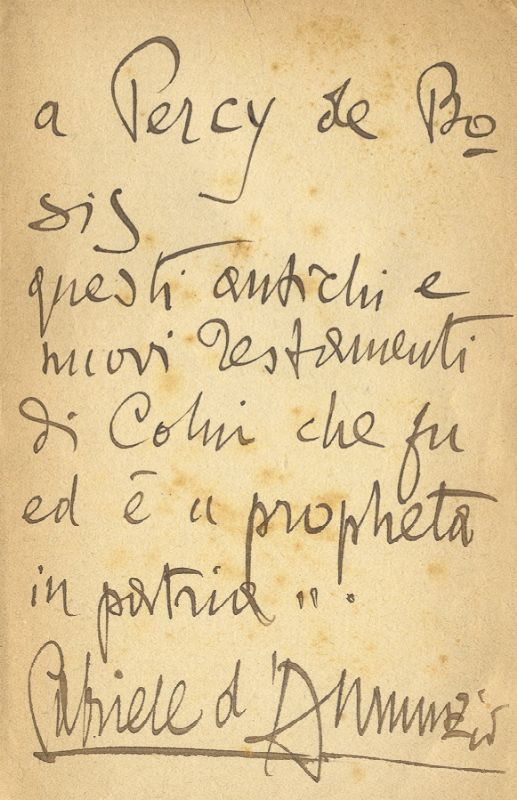 a Percy de Bo
sis
questi antichi e
nuovi Testamenti
di Colui che fu
ed è "propheta
in patria".
Gabriele d'Annunzio